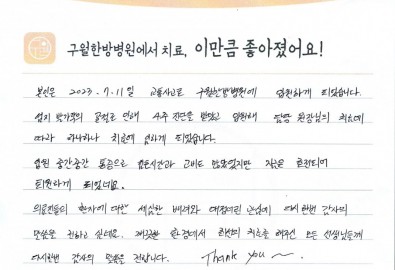 구월한방병원에서 치료, 이만큼 좋아졌어요!
본인은 2023. 7. 11일 교통사고로 구월한방병원에 입원하게 되었습니다.
4주 진단을 받았고 입원해 담당 원장님의 치료에
따라 하나하나 치료에 임하게 되었습니다.
입원 중간중간 통증으로 힘든시간과 고비도 많았었지만 지금은 호전되어
퇴원하게 되었네요.
의료진들의 환자에 대한 세심한 배려와 다시한번 감사의
말씀을 전하고 싶네요. 깨끗한 환경에서 최선의 치료를 해주신 모든 선생님들께
다시한번 감사의 말씀을 전합니다. Thank you~.